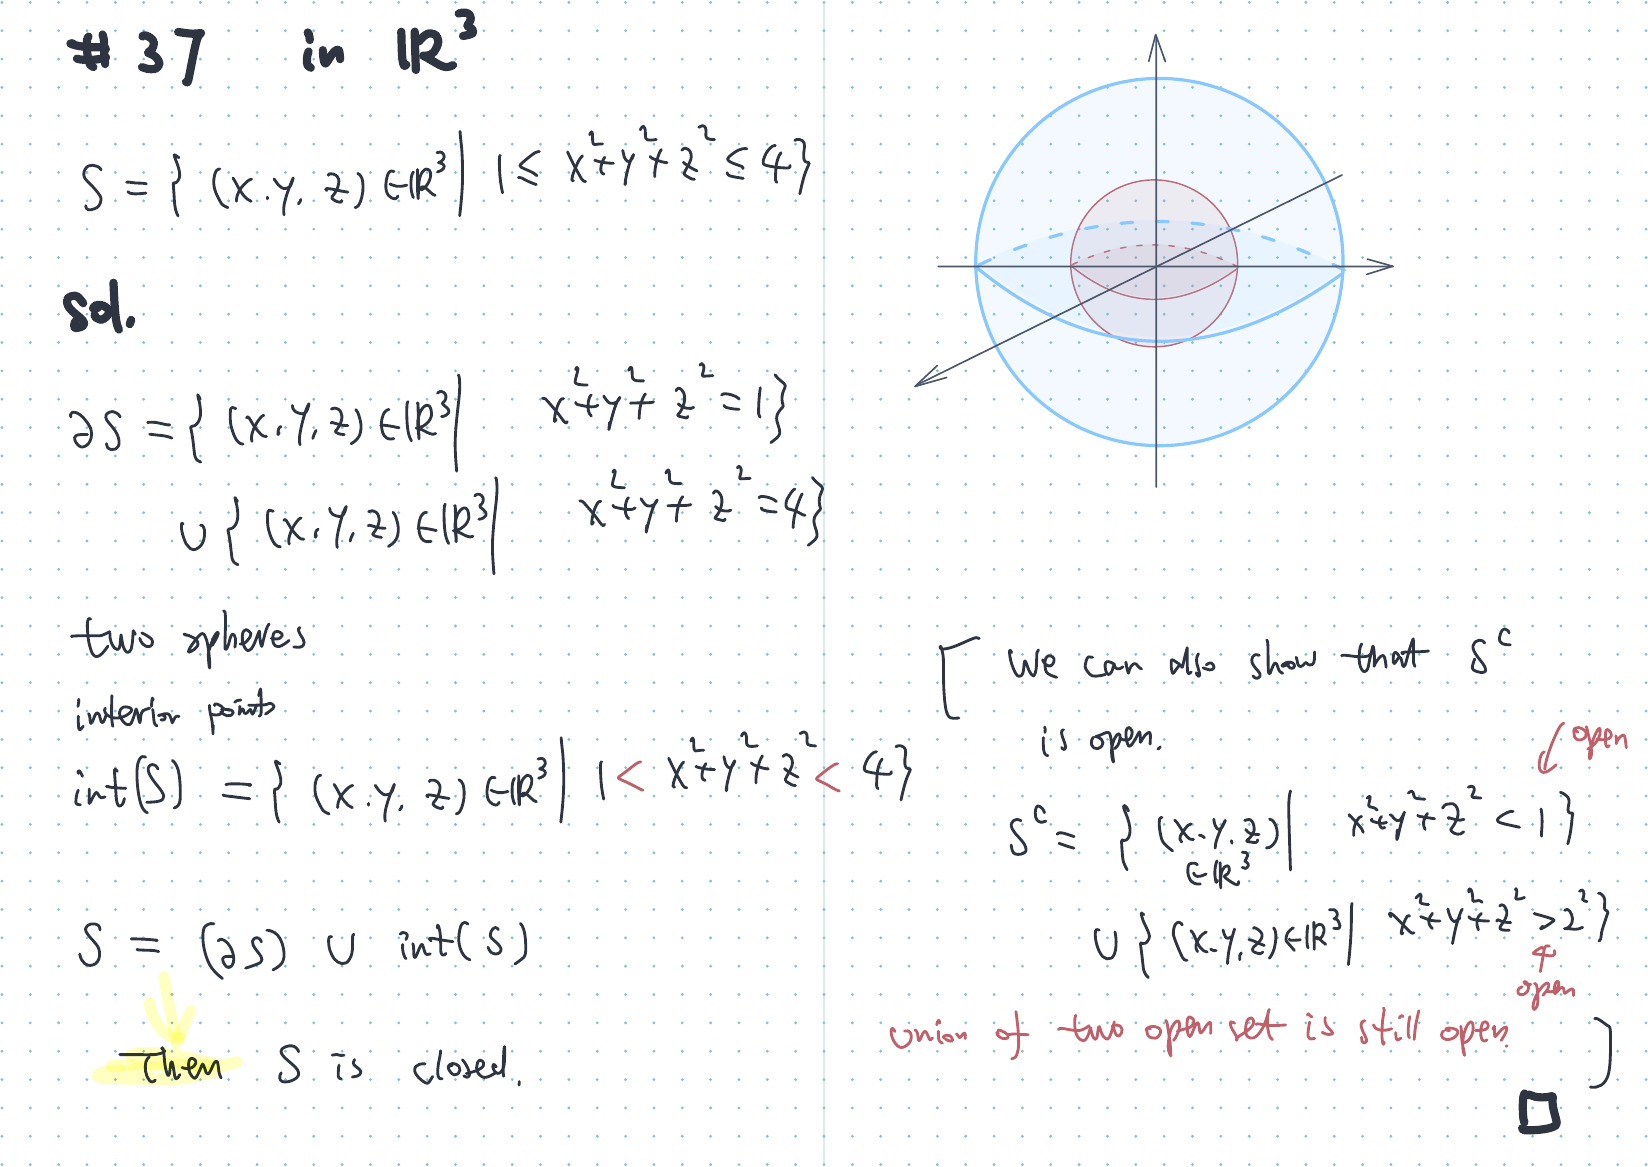 # 37 in ℝ³
S = { (x.y, z) ∈ℝ³ | 1 ≤ x²+y²+z² ≤ 4}
sol.
∂S = { (x,y,z) ∈ℝ³ | x²+y²+z² = 1}
∪ { (x,y,z) ∈ℝ³ | x²+y²+z² = 4}
two spheres
interior points
int(S) = { (x.y, z) ∈ℝ³ | 1 < x²+y²+z² < 4}
S = (∂S) ∪ int(S)
Then S is closed.
[ We can also show that Sᶜ
is open.
open
Sᶜ = { (x.y,z) ∈ℝ³ | x²+y²+z² < 1}
∪ { (x.y,z) ∈ℝ³ | x²+y²+z² > 2²}
open
union of two open set is still open. ]
□